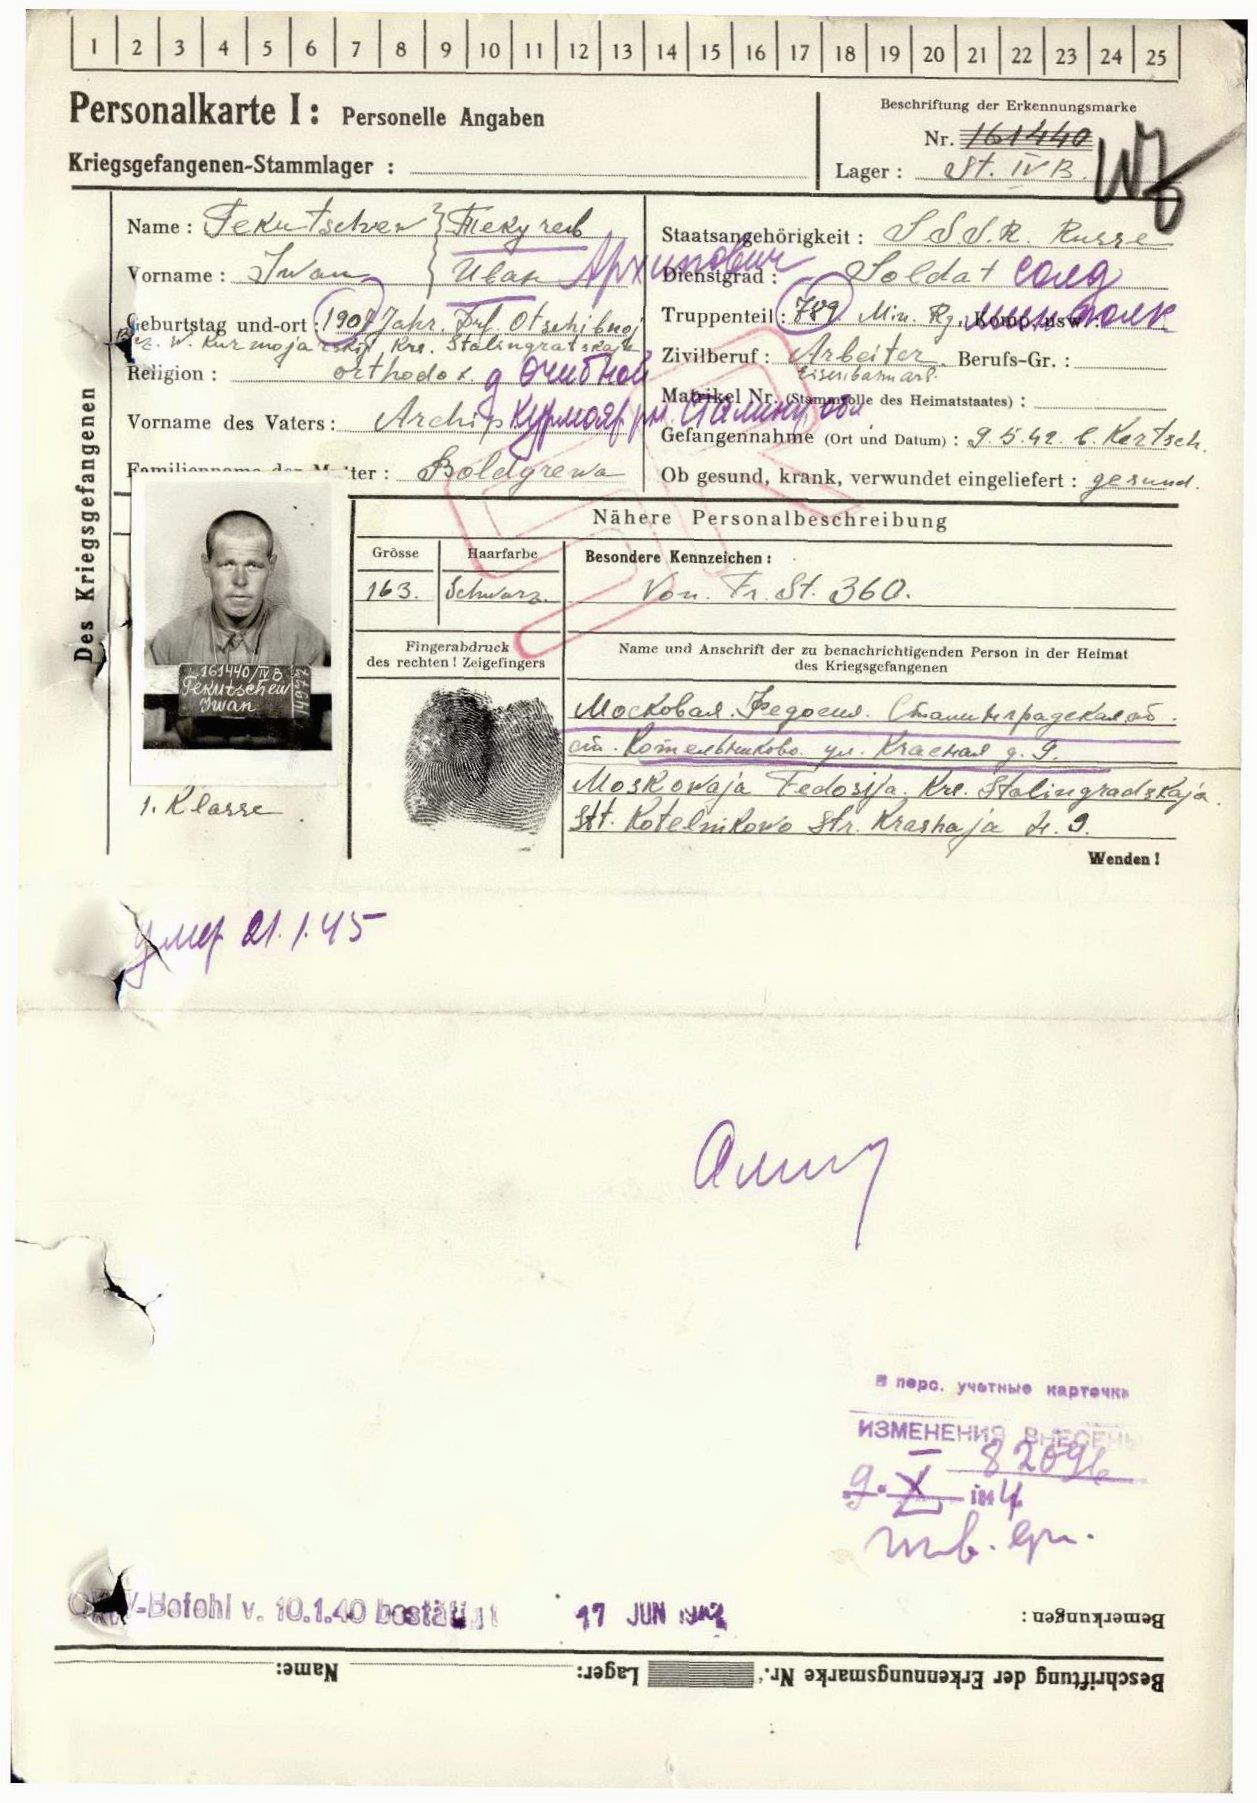 1 2 3 4 5 6 7 8 9 10 11 12 13 14 15 16 17 18 19 20 21 22 23 24 25
Personalkarte I: Personelle Angaben
Beschriftung der Erkennungsmarke
Nr. 161440
Kriegsgefangenen-Stammlager :
Lager : St. IV B.
Des Kriegsgefangenen
Name : Tekutschew Текучев
Vorname : Iwan Иван Архипович
Geburtstag und-ort : 1901 Jahr. Drf. Otschibnoj
Bez. W. Kurmojarskij, Krs. Stalingratskaja
Religion : orthodox. д Очибной
Vorname des Vaters : Archip Курмояр рн. Сталингр обл
Familienname der Mutter : Boldyrewa
Staatsangehörigkeit : S.S.S.R. Russe
Dienstgrad : Soldat солд
Truppenteil : 789 Min. Rg. Komp. usw. мин полк
Zivilberuf : Arbeiter Berufs-Gr. :
Eisenbahnarb.
Matrikel Nr. (Stammrolle des Heimatstaates) :
Gefangennahme (Ort und Datum) : 9.5.42 b. Kertsch.
Ob gesund, krank, verwundet eingeliefert : gesund.
Nähere Personalbeschreibung
Grösse Haarfarbe Besondere Kennzeichen :
163. Schwarz. Von. Fr. St. 360.
Fingerabdruck
des rechten ! Zeigefingers
Name und Anschrift der zu benachrichtigenden Person in der Heimat
des Kriegsgefangenen
161440/IV B
Tekutschew
Iwan
14977
1. Klasse
Московая. Федосия. Сталинградская об.
ст. Котельниково. ул. Красная д. 9.
Moskowaja Fedosija. Krs. Stalingradskaja.
Stt. Kotelnikowo Str. Krasnaja H. 9.
Wenden !
умер 21.1.45
в перс. учетные карточки
ИЗМЕНЕНИЯ ВНЕСЕНЫ
OKW-Befehl v. 10.1.40 bestätigt 17 JUN 1942
Bemerkungen :
Beschriftung der Erkennungsmarke Nr. Lager: Name: